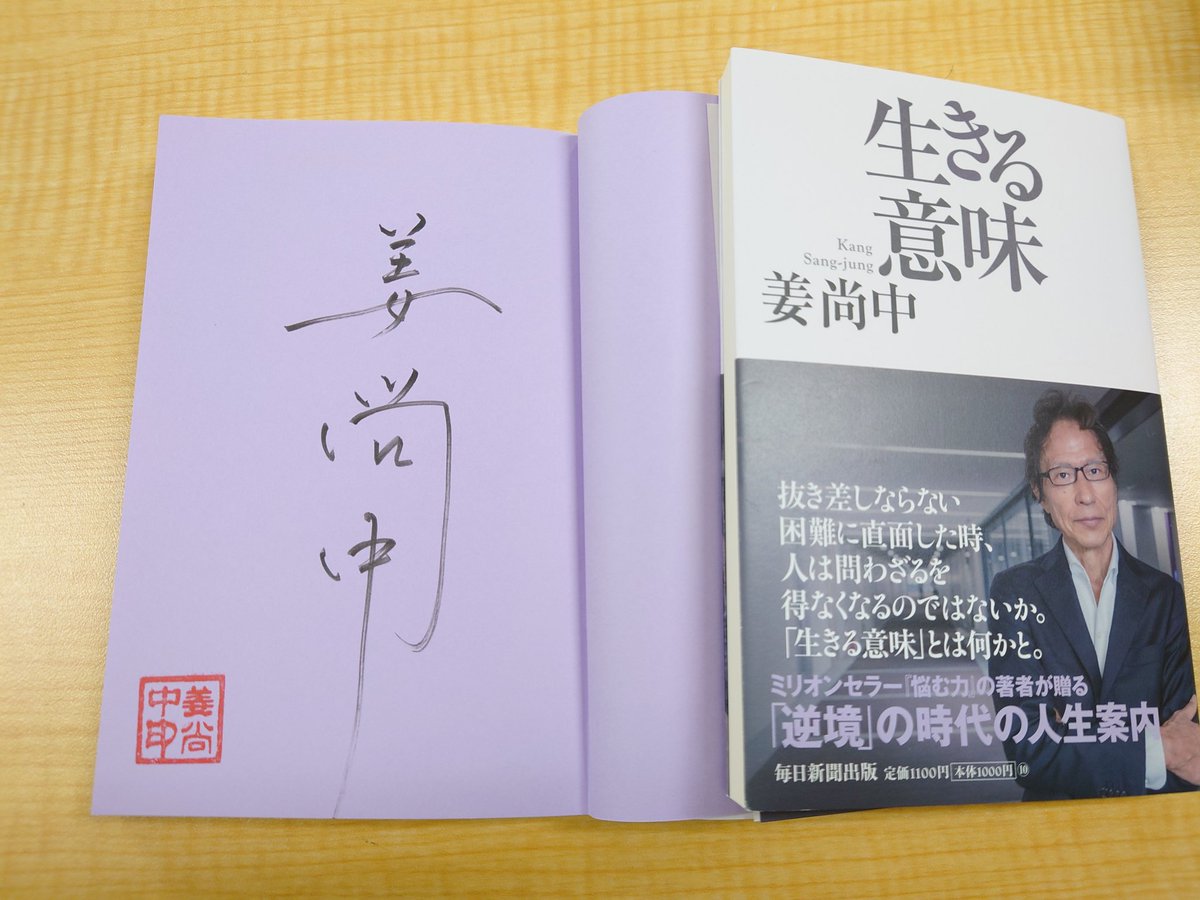 姜尚中
姜尚
中印
生きる
意味
Kang
Sang-jung
姜尚中
抜き差しならない
困難に直面した時、
人は問わざるを
得なくなるのではないか。
「生きる意味」とは何かと。
ミリオンセラー『悩む力』の著者が贈る
「逆境」の時代の人生案内
毎日新聞出版 定価1100円 本体1000円 ⑩